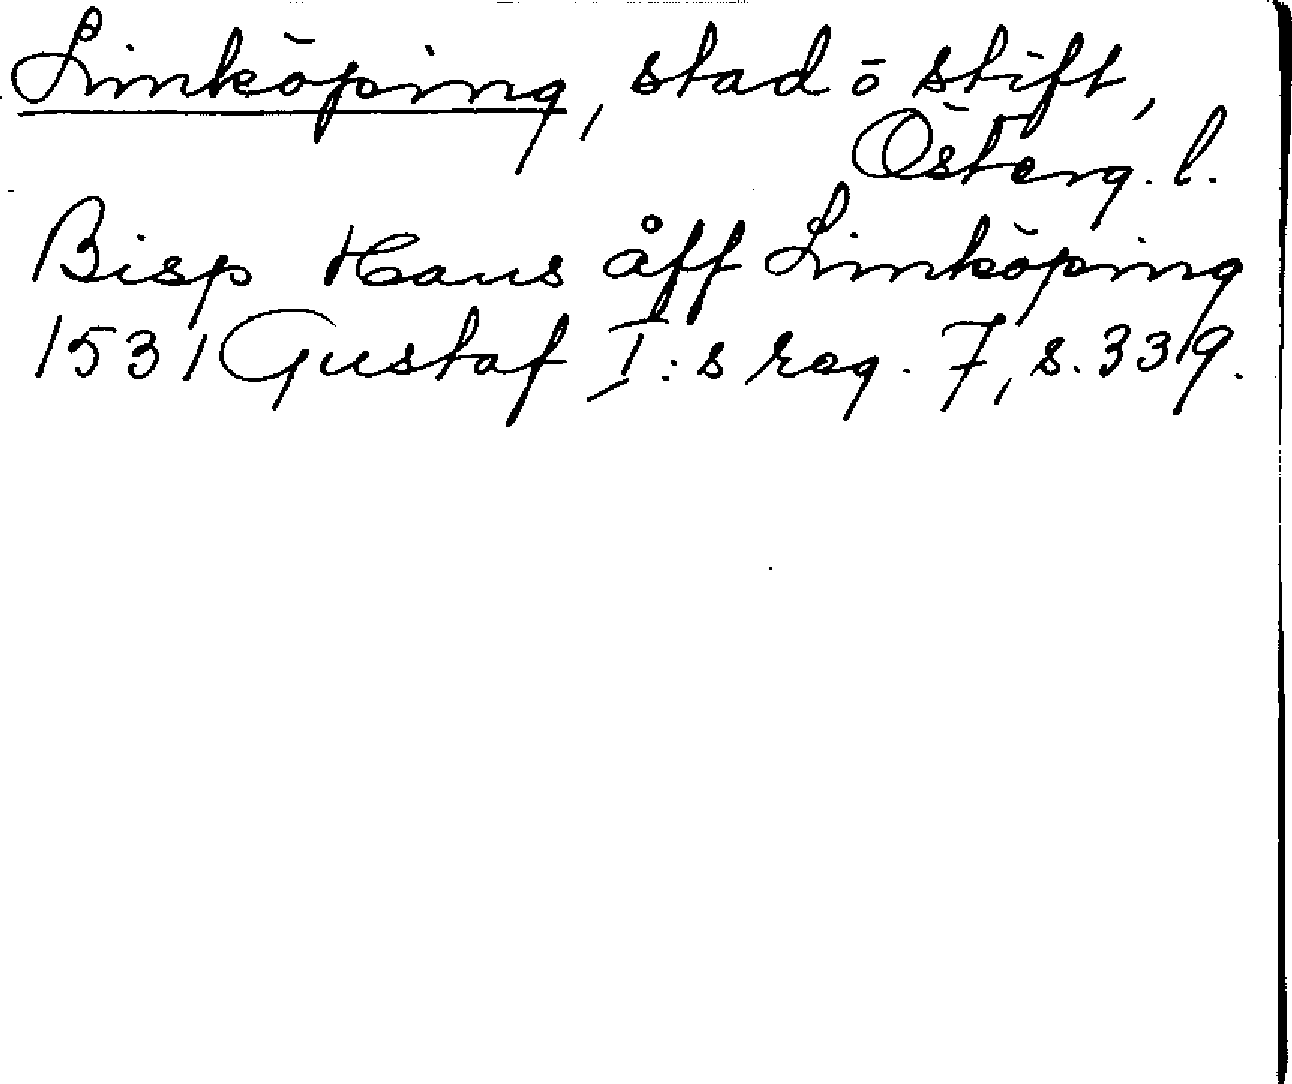 Linköping, stad ō stift,
Österg. l.
Bisp Hans åff Linköping
1531 Gustaf I:s reg. 7, s. 339.